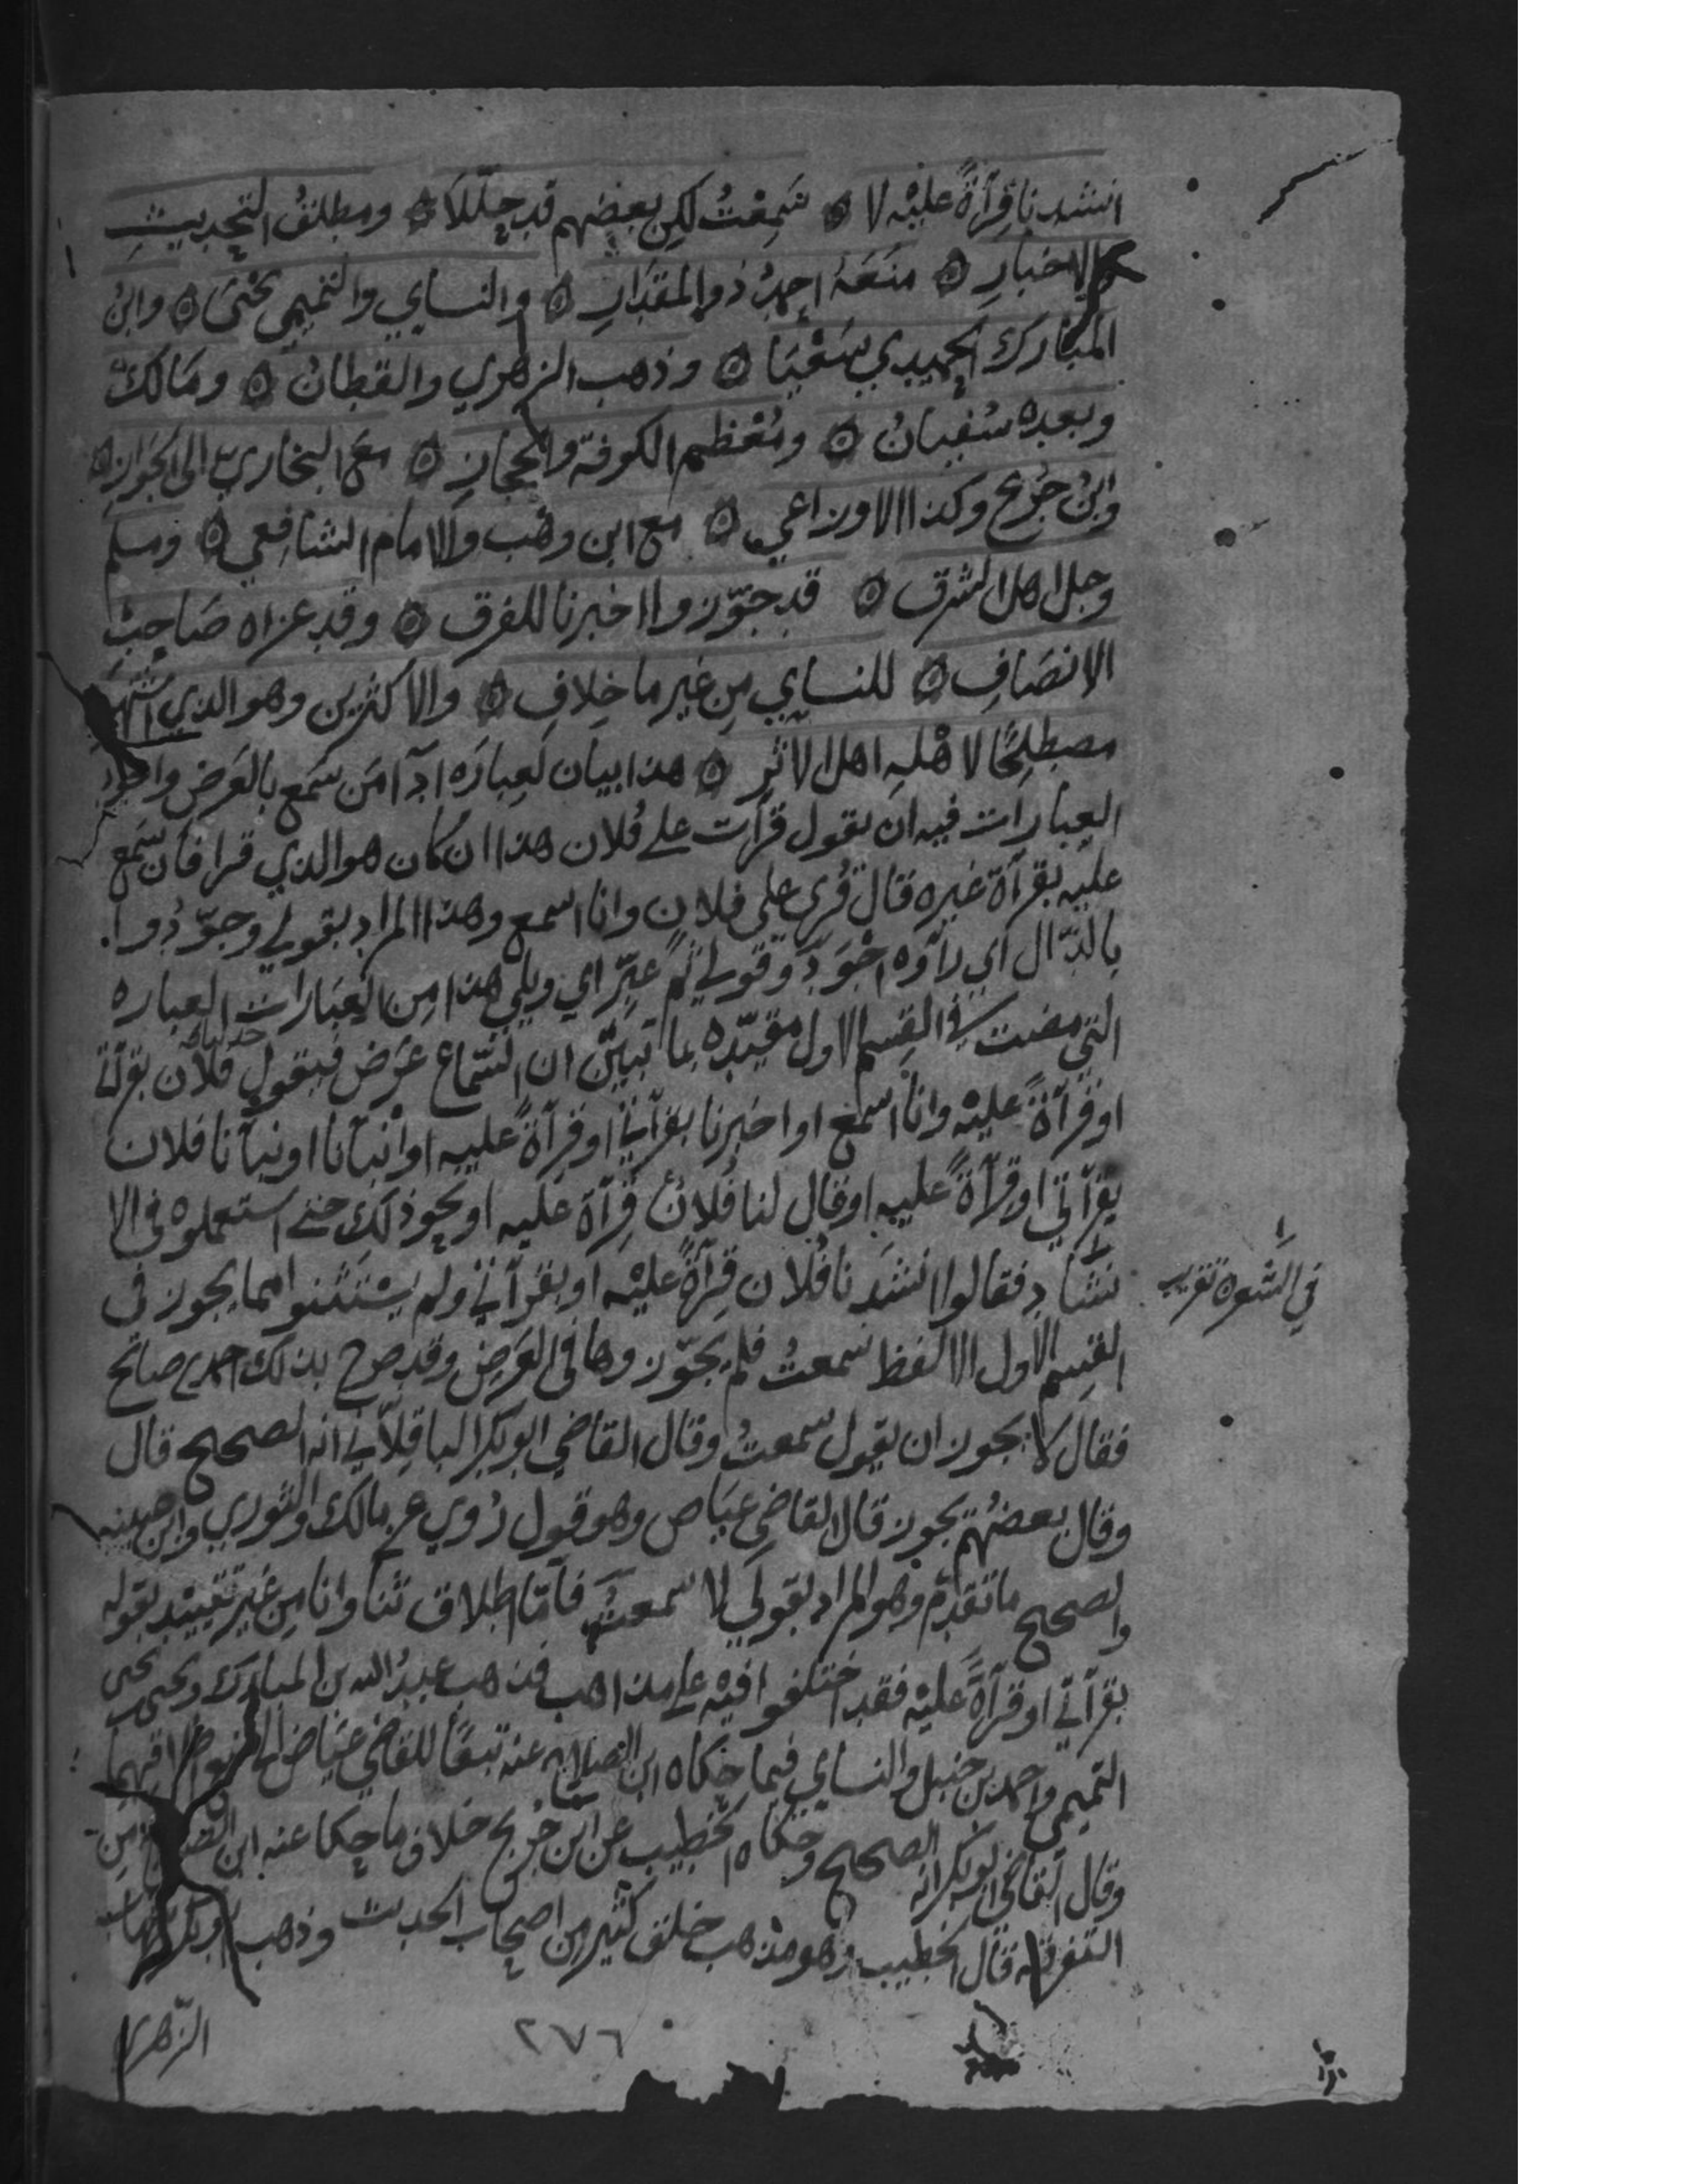 انشدنا قرآةً عليه لا ۞ سَمِعْتُ لكن بعضهم قد حلّلا ۞ ومطلقُ التحديثِ
والاخبارِ ۞ منَعَهُ احمدُ ذو المقدَارِ ۞ والنساي والتميمي يحْيَى ۞ وابنُ
المبَارك الحميدي سَعْيَا ۞ وذهب الزهري والقطانُ ۞ ومَالكٌ
وبعده سُفيانُ ۞ ومُعْظم الكوفة والحجازِ ۞ مع البخاري الى الجَوازِ ۞
وابنُ جُريج وكذا الاوزاعي ۞ مع ابن وهْب والامام الشافعي ۞ ومسلم
وجل اهل الشرق ۞ قد جوّزوا اخبرنا للفرق ۞ وقد عزاه صَاحِبُ
الانصَافِ ۞ للنساي مِن غير ما خِلافِ ۞ والاكثرين وهو الذي اشتهَر
مصطلحًا لاهْلهِ اهل الاثرِ ۞ هذا بيان لعبارَه ادآ مَن سَمع بالعَرض واجود
العبارات فيه ان يقول قرأت على فُلان هذا ان كان هو الذي قرا فان سَمع
عليه بقرآة غيره قال قُري على فلان وانا اسمع وهذا المراد بقولي وجوّدوا.
بالدّال اي رآوه اجْوَد وقولي ثم عبّر اي ويلي هذا من العبَارات العباره
التي مضت في القِسم الاول مقيّده بما تبيّن ان السّماع عَرض فيقول حدثنا فلان بقرآتي
او قرآةً عليْه وانا اسْمع او اخبرنا بقرآتي او قرآةً عليه او انْبَانا او نبأنا فلان
بقرآتي او قرآةً عليه او قال لنا فُلانٌ قرآة عليه او نحو ذلك حتى استعملوه في الا
نشَادِ فقالوا انشدَنا فُلان قِرآةً عليْه او بقرآتي ولم يسْتثنوا مما يجوز في
في الشعر
القِسم الاول الا لفظ سمعتُ فلم يجوّزوها في العَرض وقد صرح بذلك احمد بن صالح
فقال لا يجوز ان يقول سمعتُ وقال القاضي ابو بكر الباقلّاني انه الصحيح قال
وقال بعضُهم يجوز قال القاضي عيَاض وهو قول رُوي عن مالك والثوري وابن عيينه
والصحيح ما تقدّم وهو المراد بقولي لا سمعتُ فأمّا اطلاق ثنا وانا مِن غير تقييد بقوله
بقرآتي او قرآةً عليْه فقد اختلفوا فيْه على مذاهب فذهب عبدُ الله بن المبارَك ويحيى بن يحيى
التميمي واحمد بن حنبل والنساي فيما حكاه ابن الصلاح عنه تبعًا للقاضي عيَاض الى منع اطلاقهما
وقال القاضي ابو بكر انه الصحيح وحكاه الخطيب عن ابن جُريج خلاف ما حكا عنه ابن الصلاح مِن
التفرقه قال الخطيب وهو مذهب خلق كثير من اصحاب الحديث وذهب ابو بكر بن شهاب
الزهري
٢٧٦